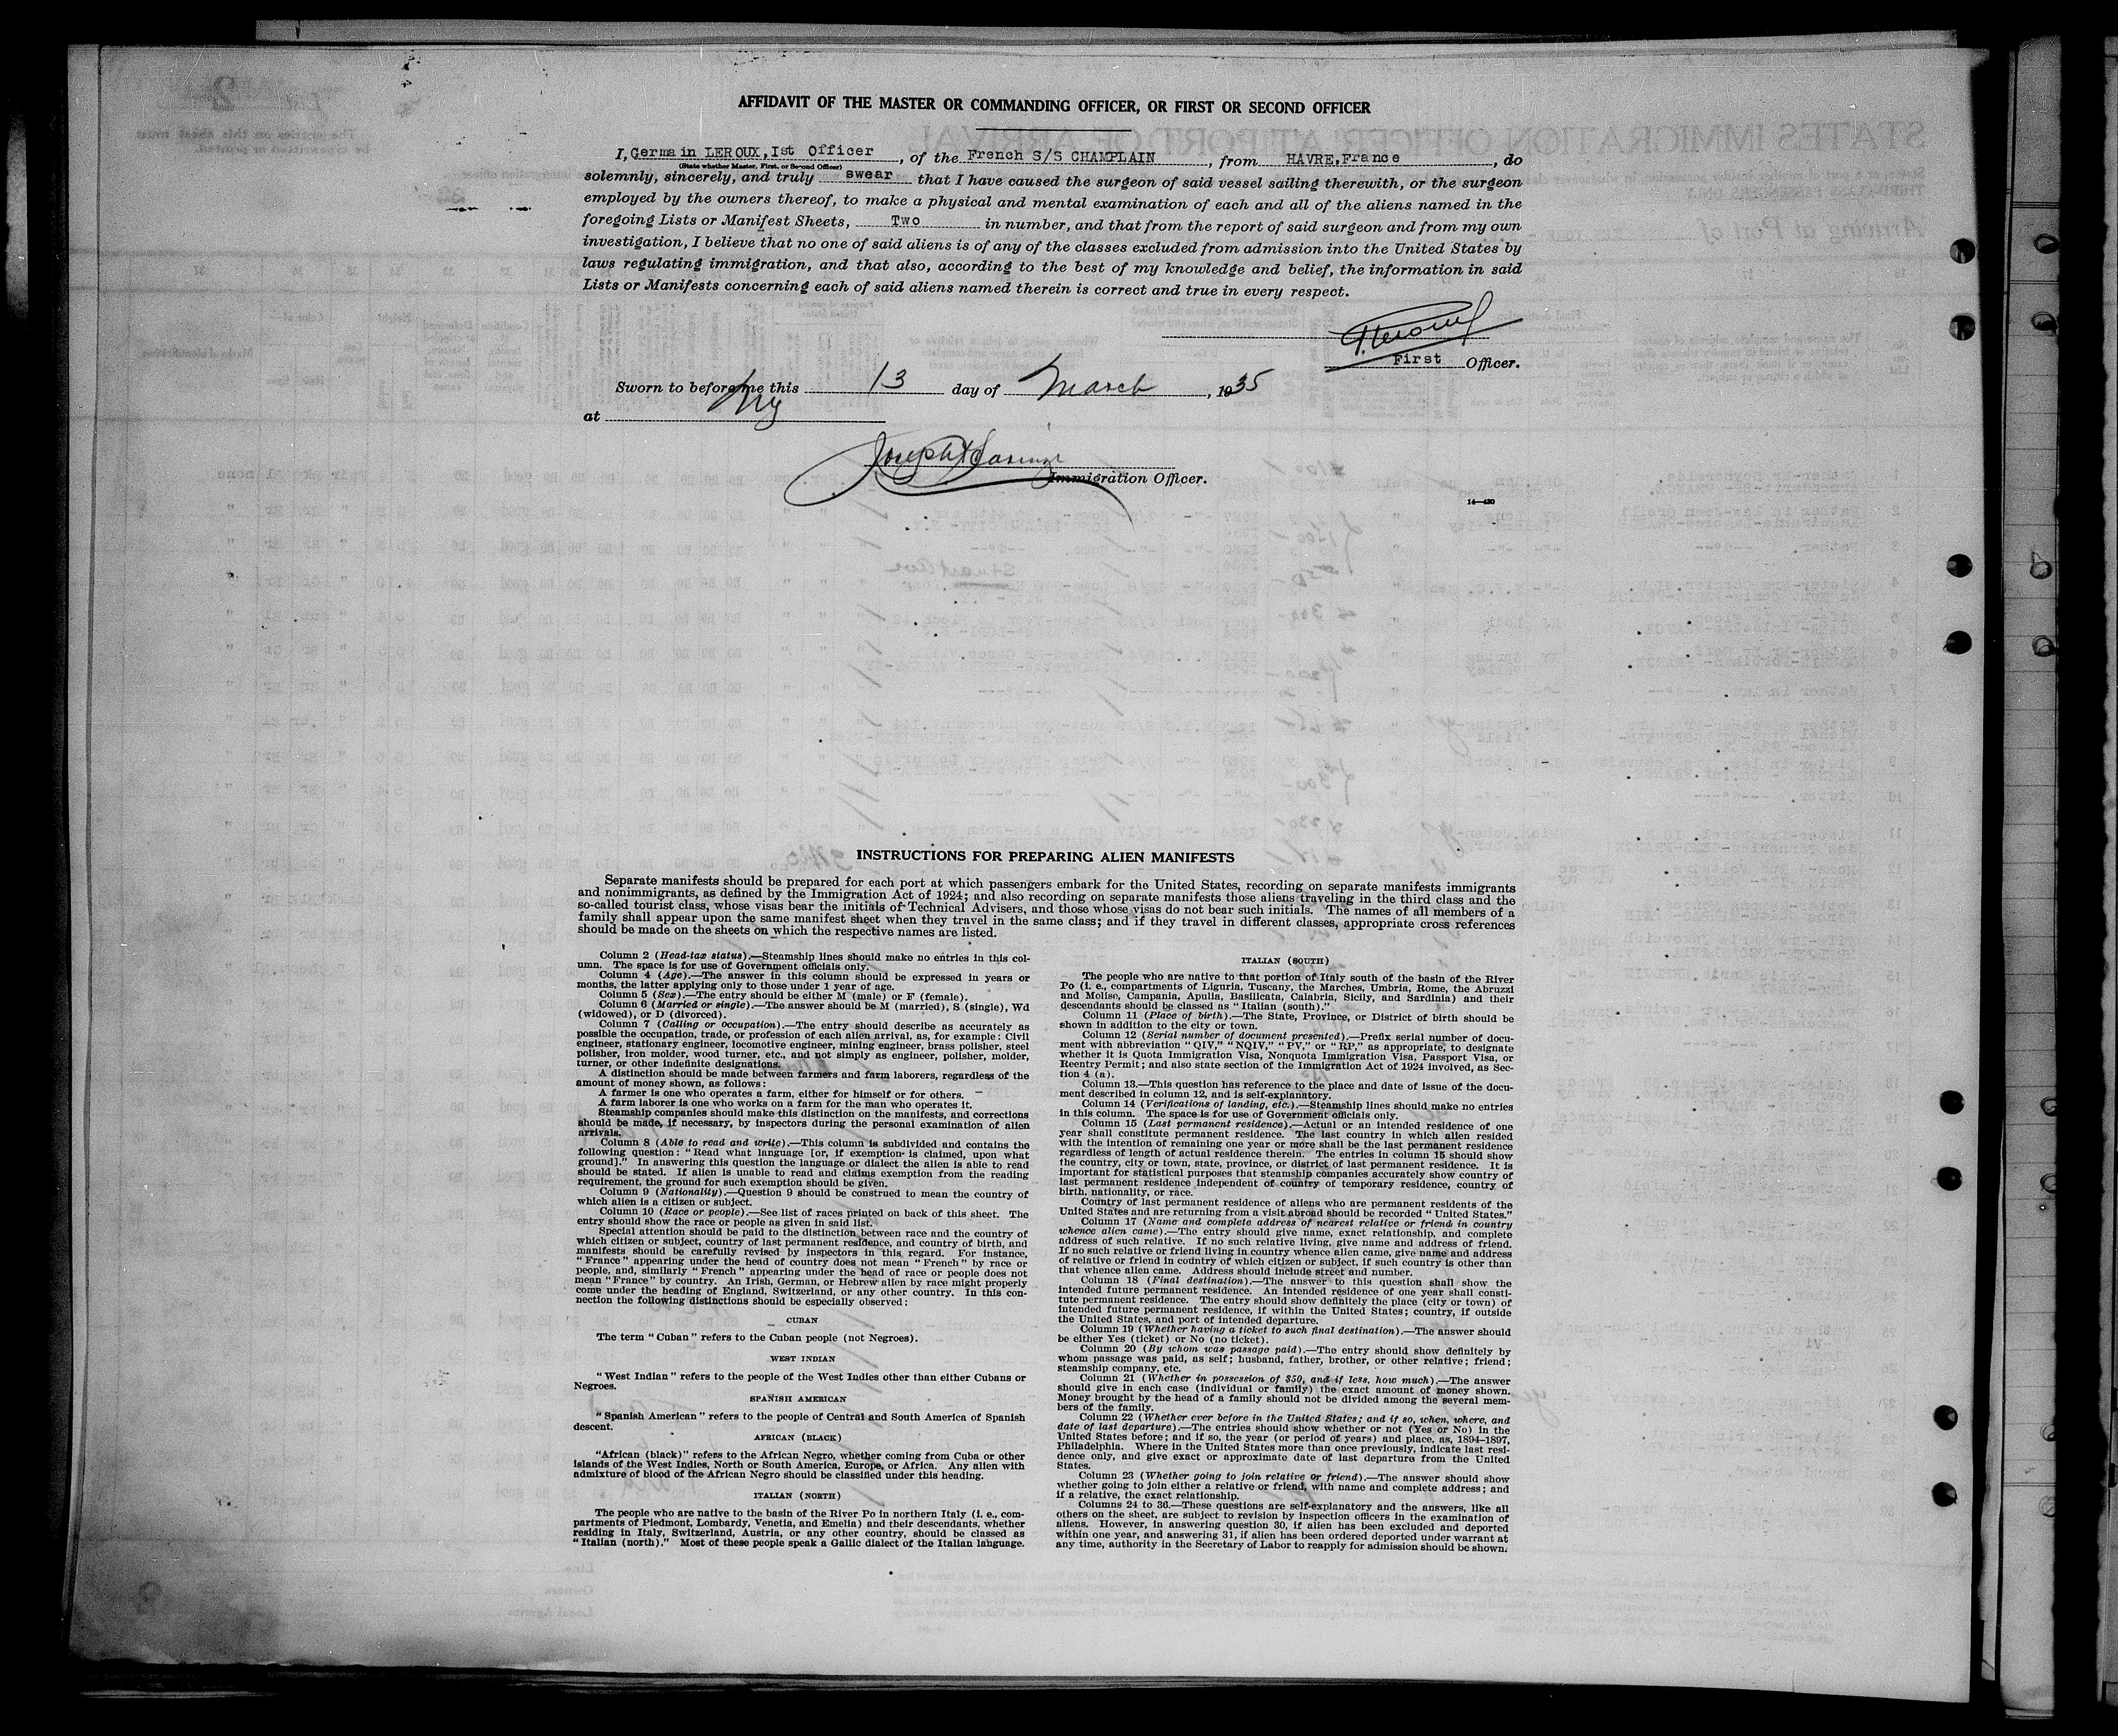 AFFIDAVIT OF THE MASTER OR COMMANDING OFFICER, OR FIRST OR SECOND OFFICER
I, Germain LEROUX, Ist Officer, of the French S/S CHAMPLAIN, from HAVRE, France, do
(State whether Master, First, or Second Officer)
solemnly, sincerely, and truly swear that I have caused the surgeon of said vessel sailing therewith, or the surgeon
employed by the owners thereof, to make a physical and mental examination of each and all of the aliens named in the
foregoing Lists or Manifest Sheets, Two in number, and that from the report of said surgeon and from my own
investigation, I believe that no one of said aliens is of any of the classes excluded from admission into the United States by
laws regulating immigration, and that also, according to the best of my knowledge and belief, the information in said
Lists or Manifests concerning each of said aliens named therein is correct and true in every respect.
First Officer.
Sworn to before me this 13 day of March, 1935
at NY
Immigration Officer.
14—430
INSTRUCTIONS FOR PREPARING ALIEN MANIFESTS
Separate manifests should be prepared for each port at which passengers embark for the United States, recording on separate manifests immigrants
and nonimmigrants, as defined by the Immigration Act of 1924; and also recording on separate manifests those aliens traveling in the third class and the
so-called tourist class, whose visas bear the initials of Technical Advisers, and those whose visas do not bear such initials. The names of all members of a
family shall appear upon the same manifest sheet when they travel in the same class; and if they travel in different classes, appropriate cross references
should be made on the sheets on which the respective names are listed.
Column 2 (Head-tax status).—Steamship lines should make no entries in this col-
umn. The space is for use of Government officials only.
Column 4 (Age).—The answer in this column should be expressed in years or
months, the latter applying only to those under 1 year of age.
Column 5 (Sex).—The entry should be either M (male) or F (female).
Column 6 (Married or single).—The answer should be M (married), S (single), Wd
(widowed), or D (divorced).
Column 7 (Calling or occupation).—The entry should describe as accurately as
possible the occupation, trade, or profession of each alien arrival, as, for example: Civil
engineer, stationary engineer, locomotive engineer, mining engineer, brass polisher, steel
polisher, iron molder, wood turner, etc., and not simply as engineer, polisher, molder,
turner, or other indefinite designations.
A distinction should be made between farmers and farm laborers, regardless of the
amount of money shown, as follows:
A farmer is one who operates a farm, either for himself or for others.
A farm laborer is one who works on a farm for the man who operates it.
Steamship companies should make this distinction on the manifests, and corrections
should be made, if necessary, by inspectors during the personal examination of alien
arrivals.
Column 8 (Able to read and write).—This column is subdivided and contains the
following question: "Read what language [or, if exemption is claimed, upon what
ground]." In answering this question the language or dialect the alien is able to read
should be stated. If alien is unable to read and claims exemption from the reading
requirement, the ground for such exemption should be given.
Column 9 (Nationality).—Question 9 should be construed to mean the country of
which alien is a citizen or subject.
Column 10 (Race or people).—See list of races printed on back of this sheet. The
entry should show the race or people as given in said list.
Special attention should be paid to the distinction between race and the country of
which citizen or subject, country of last permanent residence, and country of birth, and
manifests should be carefully revised by inspectors in this regard. For instance,
"France" appearing under the head of country does not mean "French" by race or
people, and, similarly "French" appearing under the head of race or people does not
mean "France" by country. An Irish, German, or Hebrew alien by race might properly
come under the heading of England, Switzerland, or any other country. In this con-
nection the following distinctions should be especially observed:
CUBAN
The term "Cuban" refers to the Cuban people (not Negroes).
WEST INDIAN
"West Indian" refers to the people of the West Indies other than either Cubans or
Negroes.
SPANISH AMERICAN
"Spanish American" refers to the people of Central and South America of Spanish
descent.
AFRICAN (BLACK)
"African (black)" refers to the African Negro, whether coming from Cuba or other
islands of the West Indies, North or South America, Europe, or Africa. Any alien with
admixture of blood of the African Negro should be classified under this heading.
ITALIAN (NORTH)
The people who are native to the basin of the River Po in northern Italy (i. e., com-
partments of Piedmont, Lombardy, Venetia, and Emelia) and their descendants, whether
residing in Italy, Switzerland, Austria, or any other country, should be classed as
"Italian (north)." Most of these people speak a Gallic dialect of the Italian language.
ITALIAN (SOUTH)
The people who are native to that portion of Italy south of the basin of the River
Po (i. e., compartments of Liguria, Tuscany, the Marches, Umbria, Rome, the Abruzzi
and Molise, Campania, Apulia, Basilicata, Calabria, Sicily, and Sardinia) and their
descendants should be classed as "Italian (south)."
Column 11 (Place of birth).—The State, Province, or District of birth should be
shown in addition to the city or town.
Column 12 (Serial number of document presented).—Prefix serial number of docu-
ment with abbreviation "QIV," "NQIV," "PV," or "RP," as appropriate, to designate
whether it is Quota Immigration Visa, Nonquota Immigration Visa, Passport Visa, or
Reentry Permit; and also state section of the Immigration Act of 1924 involved, as Sec-
tion 4 (a).
Column 13.—This question has reference to the place and date of issue of the docu-
ment described in column 12, and is self-explanatory.
Column 14 (Verifications of landing, etc.).—Steamship lines should make no entries
in this column. The space is for use of Government officials only.
Column 15 (Last permanent residence).—Actual or an intended residence of one
year shall constitute permanent residence. The last country in which alien resided
with the intention of remaining one year or more shall be the last permanent residence
regardless of length of actual residence therein. The entries in column 15 should show
the country, city or town, state, province, or district of last permanent residence. It is
important for statistical purposes that steamship companies accurately show country of
last permanent residence independent of country of temporary residence, country of
birth, nationality, or race.
Country of last permanent residence of aliens who are permanent residents of the
United States and are returning from a visit abroad should be recorded "United States."
Column 17 (Name and complete address of nearest relative or friend in country
whence alien came).—The entry should give name, exact relationship, and complete
address of such relative. If no such relative living, give name and address of friend.
If no such relative or friend living in country whence alien came, give name and address
of relative or friend in country of which citizen or subject, if such country is other than
that whence alien came. Address should include street and number.
Column 18 (Final destination).—The answer to this question shall show the
intended future permanent residence. An intended residence of one year shall consti-
tute permanent residence. The entry should show definitely the place (city or town) of
intended future permanent residence, if within the United States; country, if outside
the United States, and port of intended departure.
Column 19 (Whether having a ticket to such final destination).—The answer should
be either Yes (ticket) or No (no ticket).
Column 20 (By whom was passage paid).—The entry should show definitely by
whom passage was paid, as self; husband, father, brother, or other relative; friend;
steamship company, etc.
Column 21 (Whether in possession of $50, and if less, how much).—The answer
should give in each case (individual or family) the exact amount of money shown.
Money brought by the head of a family should not be divided among the several mem-
bers of the family.
Column 22 (Whether ever before in the United States; and if so, when, where, and
date of last departure).—The entries should show whether or not (Yes or No) in the
United States before; and if so, the year (or period of years) and place, as, 1894–1897,
Philadelphia. Where in the United States more than once previously, indicate last resi-
dence only, and give exact or approximate date of last departure from the United
States.
Column 23 (Whether going to join relative or friend).—The answer should show
whether going to join either a relative or friend, with name and complete address; and
if a relative, the exact relationship.
Columns 24 to 36.—These questions are self-explanatory and the answers, like all
others on the sheet, are subject to revision by inspection officers in the examination of
aliens. However, in answering question 30, if alien has been excluded and deported
within one year, and answering 31, if alien has been ordered deported under warrant at
any time, authority in the Secretary of Labor to reapply for admission should be shown.